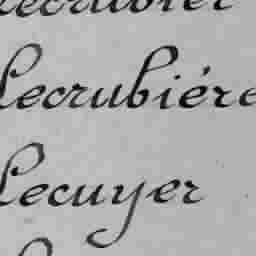 Lecrubier
Lecrubiére
Lecuyer